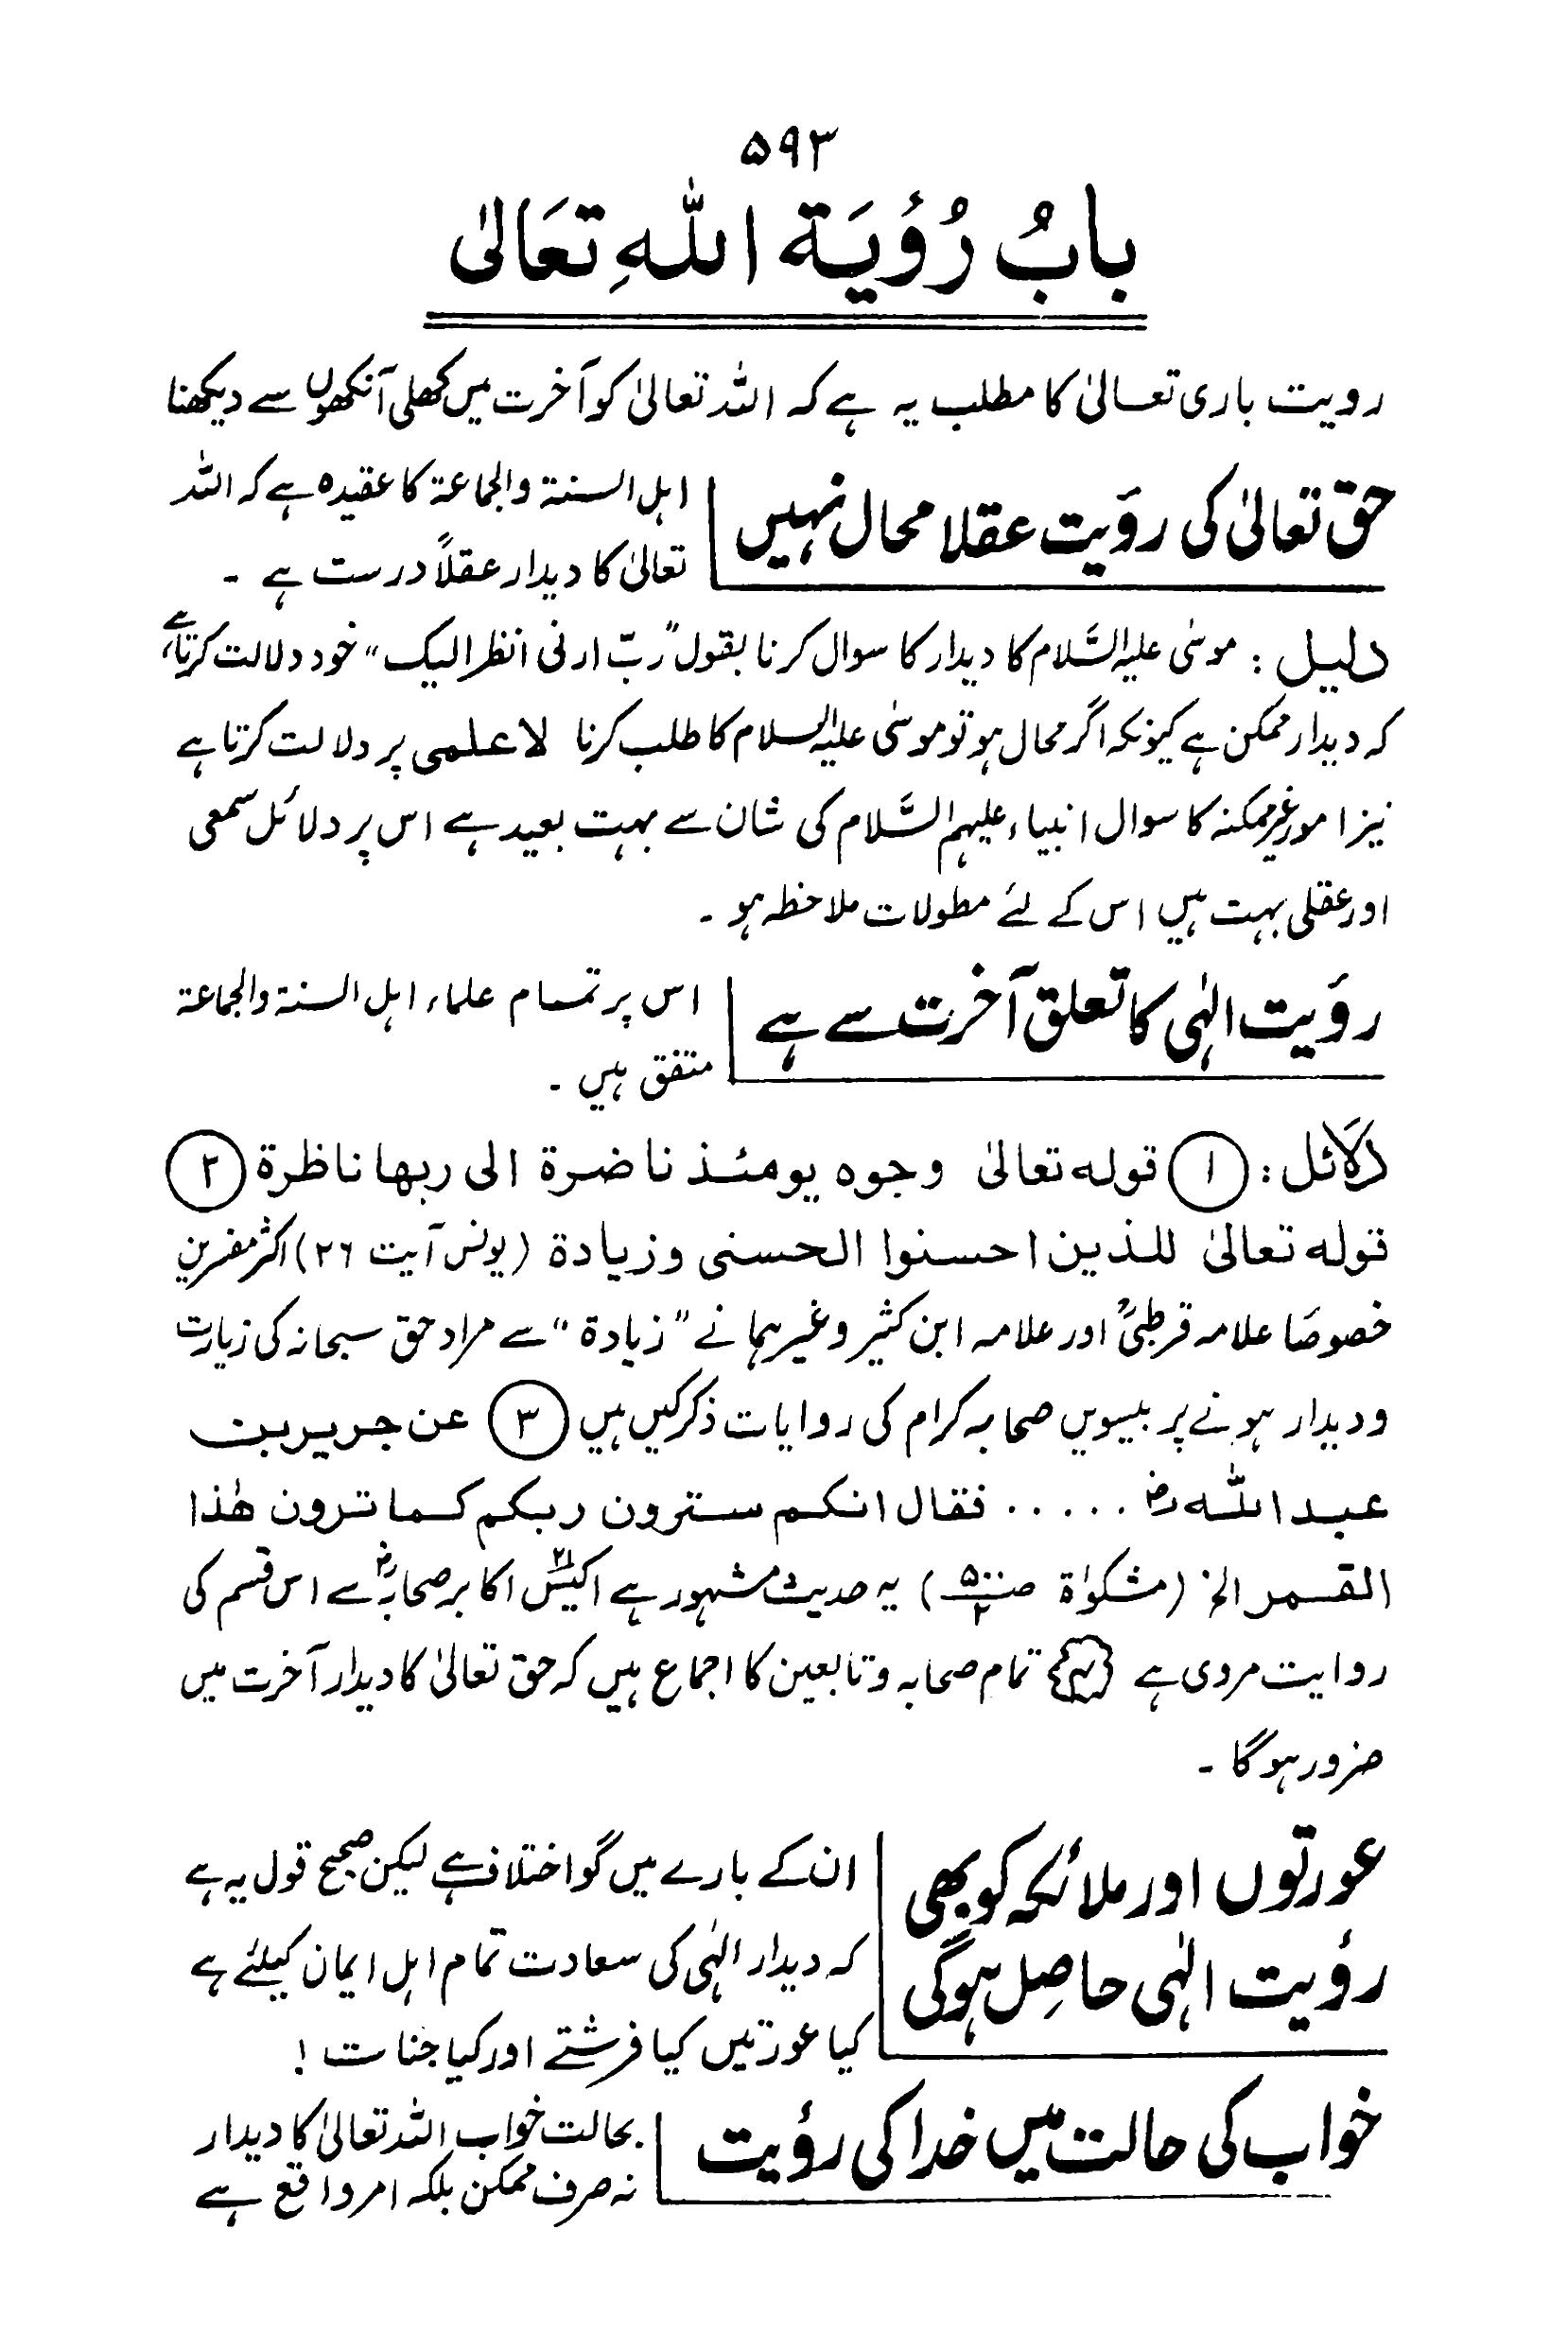 ۵۹۳
بابُ رُؤيَة اللهِ تعَالىٰ
رویت باری تعالیٰ کا مطلب یہ ہے کہ اللہ تعالیٰ کو آخرت میں کھلی آنکھوں سے دیکھنا
حق تعالیٰ کی روَیت عقلا محال نہیں
اہل السنۃ والجماعۃ کا عقیدہ ہے کہ اللہ
تعالیٰ کا دیدار عقلاً درست ہے ۔
دلیل : موسٰی علیہ السَّلام کا دیدار کا سوال کرنا بقول ”ربّ ارنی انظر الیک“ خود دلالت کرتا ہے
کہ دیدار ممکن ہے کیونکہ اگر محال ہو تو موسٰی علیہ السلام کا طلب کرنا لاعلمی پر دلالت کرتا ہے
نیز امور غیر ممکنہ کا سوال انبیاء علیہم السَّلام کی شان سے بہت بعید ہے اس پر دلائل سمعی
اور عقلی بہت ہیں اس کے لئے مطولات ملاحظہ ہو ۔
روَیت الٰہی کا تعلق آخرت سے ہے
اس پر تمام علماء اہل السنۃ والجماعۃ
متفق ہیں ۔
دَلائل : ① قوله تعالیٰ وجوه يومئذ ناضرة الی ربها ناظرة ②
قوله تعالیٰ للذين احسنوا الحسنی وزيادة (یونس آیت ۲۶) اکثر مفسرین
خصوصًا علامہ قرطبیؒ اور علامہ ابن کثیر وغیرہما نے ”زیادۃ“ سے مراد حق سبحانہ کی زیارت
و دیدار ہونے پر بیسویں صحابہ کرام کی روایات ذکر کیں ہیں ③ عن جرير بن
عبد الله رض ..... فقال انكم سترون ربكم كما ترون هٰذا
القمر الخ (مشکوٰۃ صـ۵۰۰/۲) یہ حدیث مشہور ہے اکیسؔ ۲۱ اکابر صحابہ رض سے اس قسم کی
روایت مروی ہے ④ تمام صحابہ و تابعین کا اجماع ہیں کہ حق تعالیٰ کا دیدار آخرت میں
ضرور ہوگا ۔
عورتوں اور ملائکہ کو بھی
رؤیت الٰہی حاصِل ہوگی
ان کے بارے میں گو اختلاف ہے لیکن صحیح قول یہ ہے
کہ دیدار الٰہی کی سعادت تمام اہل ایمان کیلئے ہے
کیا عورتیں کیا فرشتے اور کیا جنات !
خواب کی حالت میں خدا کی رؤیت
بحالت خواب اللہ تعالیٰ کا دیدار
نہ صرف ممکن بلکہ امر واقع ہے